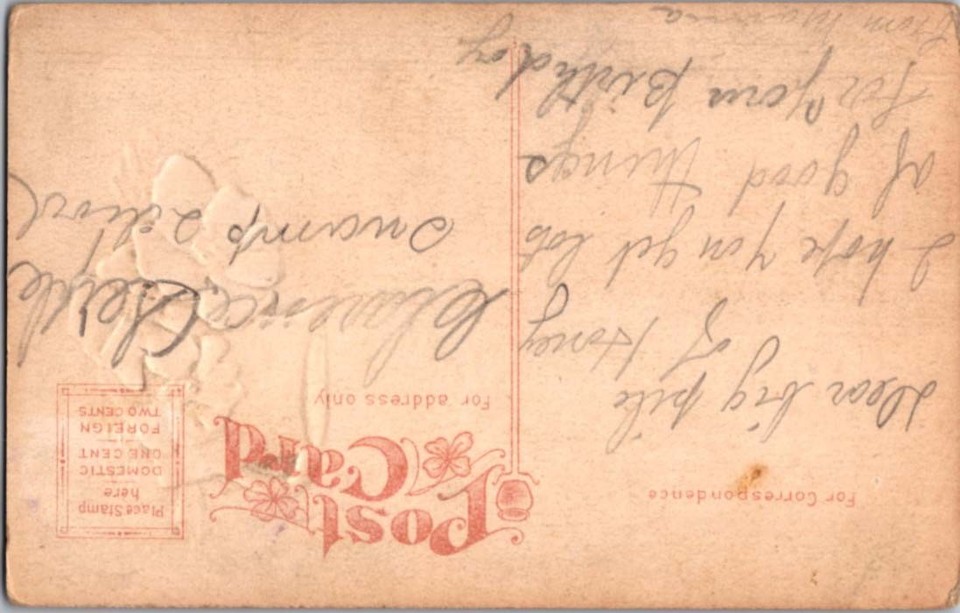 For Correspondence
Dear big pile
of Honey
I hope you get lots
of good things
for your Birthday
from Mamma
Post
Card
For address only
Place Stamp
here
DOMESTIC
ONE CENT
FOREIGN
TWO CENTS
Clarence
Swamp